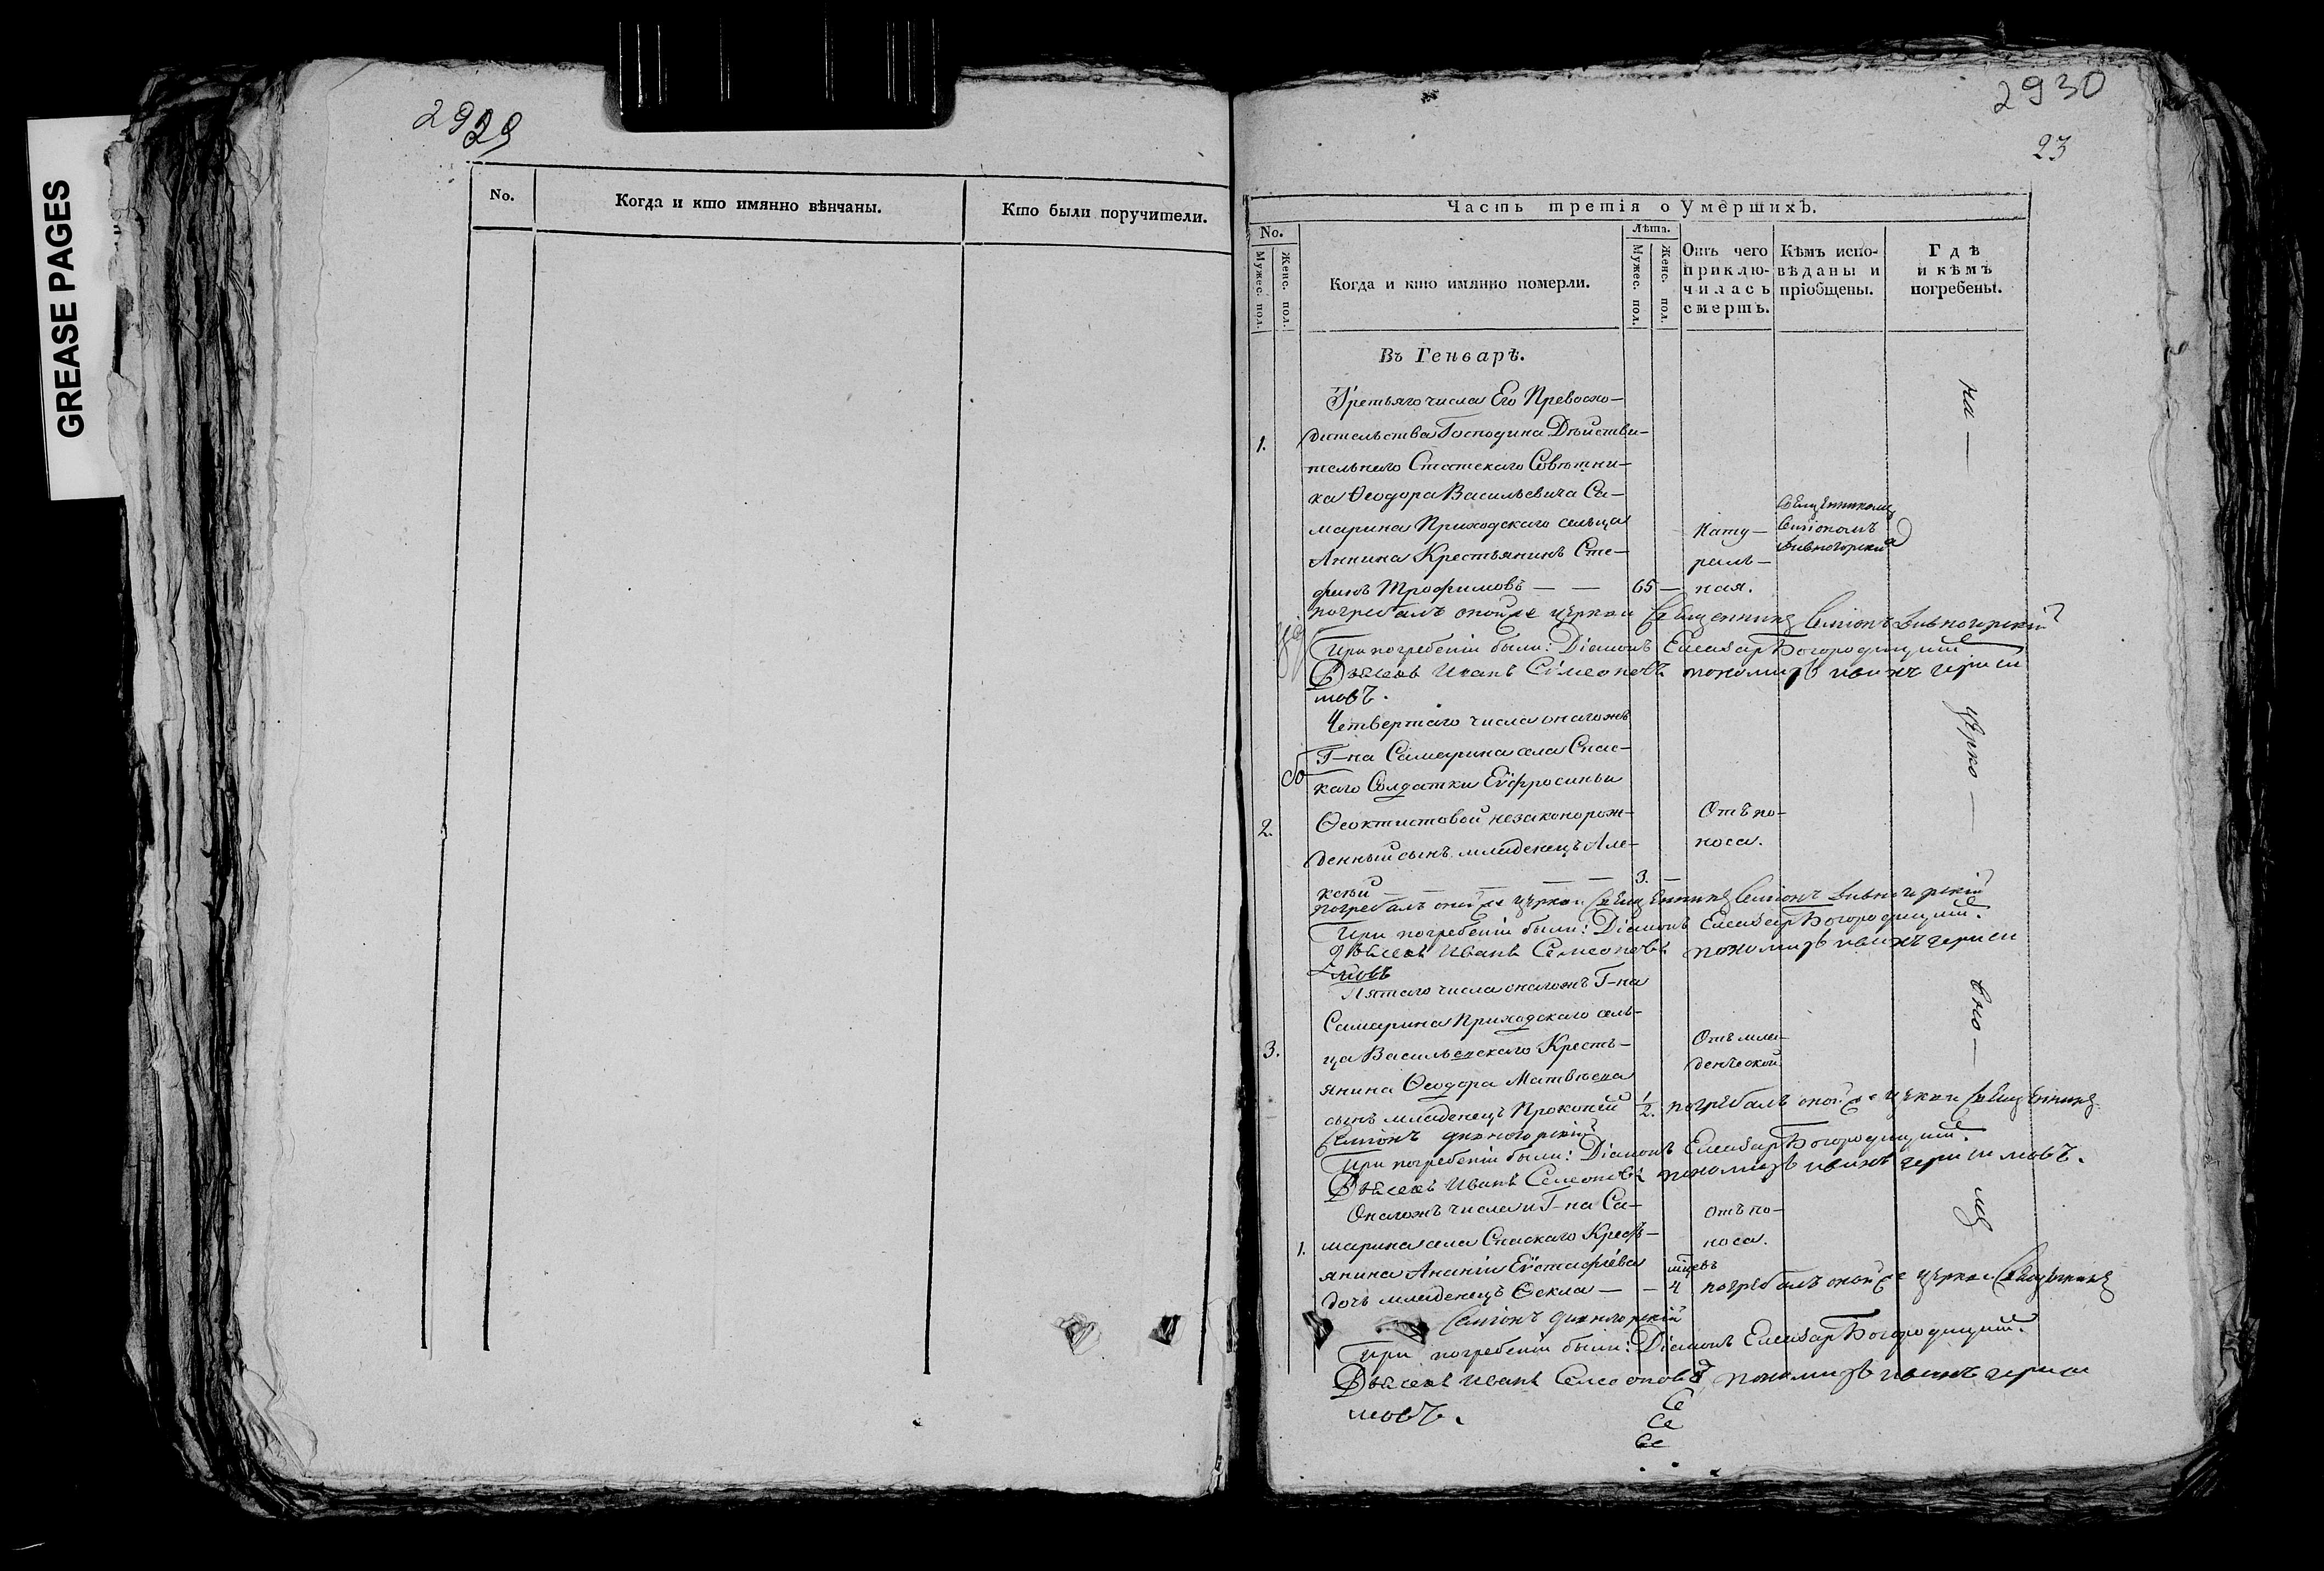 GREASE PAGES
2929
No.
Когда и кто имянно вѣнчаны.
Кто были поручители.
2930
23
Часть третія о умершихъ.
No.
Мужес. пол.
Женс. пол.
Когда и кто имянно померли.
Лѣта.
Мужес. пол.
Женс. пол.
Отъ чего приклю-
чилась смерть.
Кѣмъ испо-
вѣданы и
пріобщены.
Гдѣ
и кѣмъ
погребены.
Въ Генварѣ.
Третьяго числа Его Превосхо-
1. дительства Господина Дѣйстви-
тельнаго Статскаго Совѣтни-
ка Ѳеодора Васильевича Са-
марина Приходскаго сельца
Аннина Крестьянинъ Сте-
фанъ Трофимовъ — — 65 —
Нату-
раль-
ная.
Священникомъ
Симіономъ
на —
погребалъ оной же церкви Священникъ Симіонъ
При погребеніи были: Діаконъ Елеазаръ Богородицкій
Дьячекъ Иванъ Симеоновъ. пономарь иванъ гераси
мовъ.
Четвертаго числа онагожъ
Г-на Самарина села Спас-
каго Солдатки Еѵфросиньи
2. Ѳеоктистовой незаконорож-
денный сынъ младенецъ Але-
ксѣй — — — — 3. —
Отъ по-
носа.
церко —
погребалъ оной же церкви Священникъ Симіонъ
При погребеніи были: Діаконъ Елеазаръ Богородицкій.
Дьячекъ Иванъ Семеоновъ. пономарь иванъ гераси
мовъ
Пятаго числа онагожъ Г-на
Самарина Приходскаго сель-
3. ца Васильевскаго Кресть-
янина Ѳеодора Матвѣева
сынъ младенецъ Прокопій 1/2.
Отъ мла-
денческой
вно —
погребалъ оной же церкви Священникъ
Симіонъ дивногорскій
При погребеніи были: Діаконъ Елеазаръ Богородицкій.
Дьячекъ Иванъ Семеоновъ. пономарь иванъ герасимовъ.
Онагожъ числа и Г-на Са-
1. марина села Спаскаго Кресть-
янина Ананіи Еѵстафіева
дочь младенецъ Ѳекла — — 4
Отъ по-
носа.
мъ
погребалъ оной же церкви Священникъ
Симіонъ дивногорскій
При погребеніи были: Діаконъ Елеазаръ Богородицкій.
Дьячекъ Иванъ Семеоновъ пономарь иванъ гераси
мовъ.
Се
Се
Се